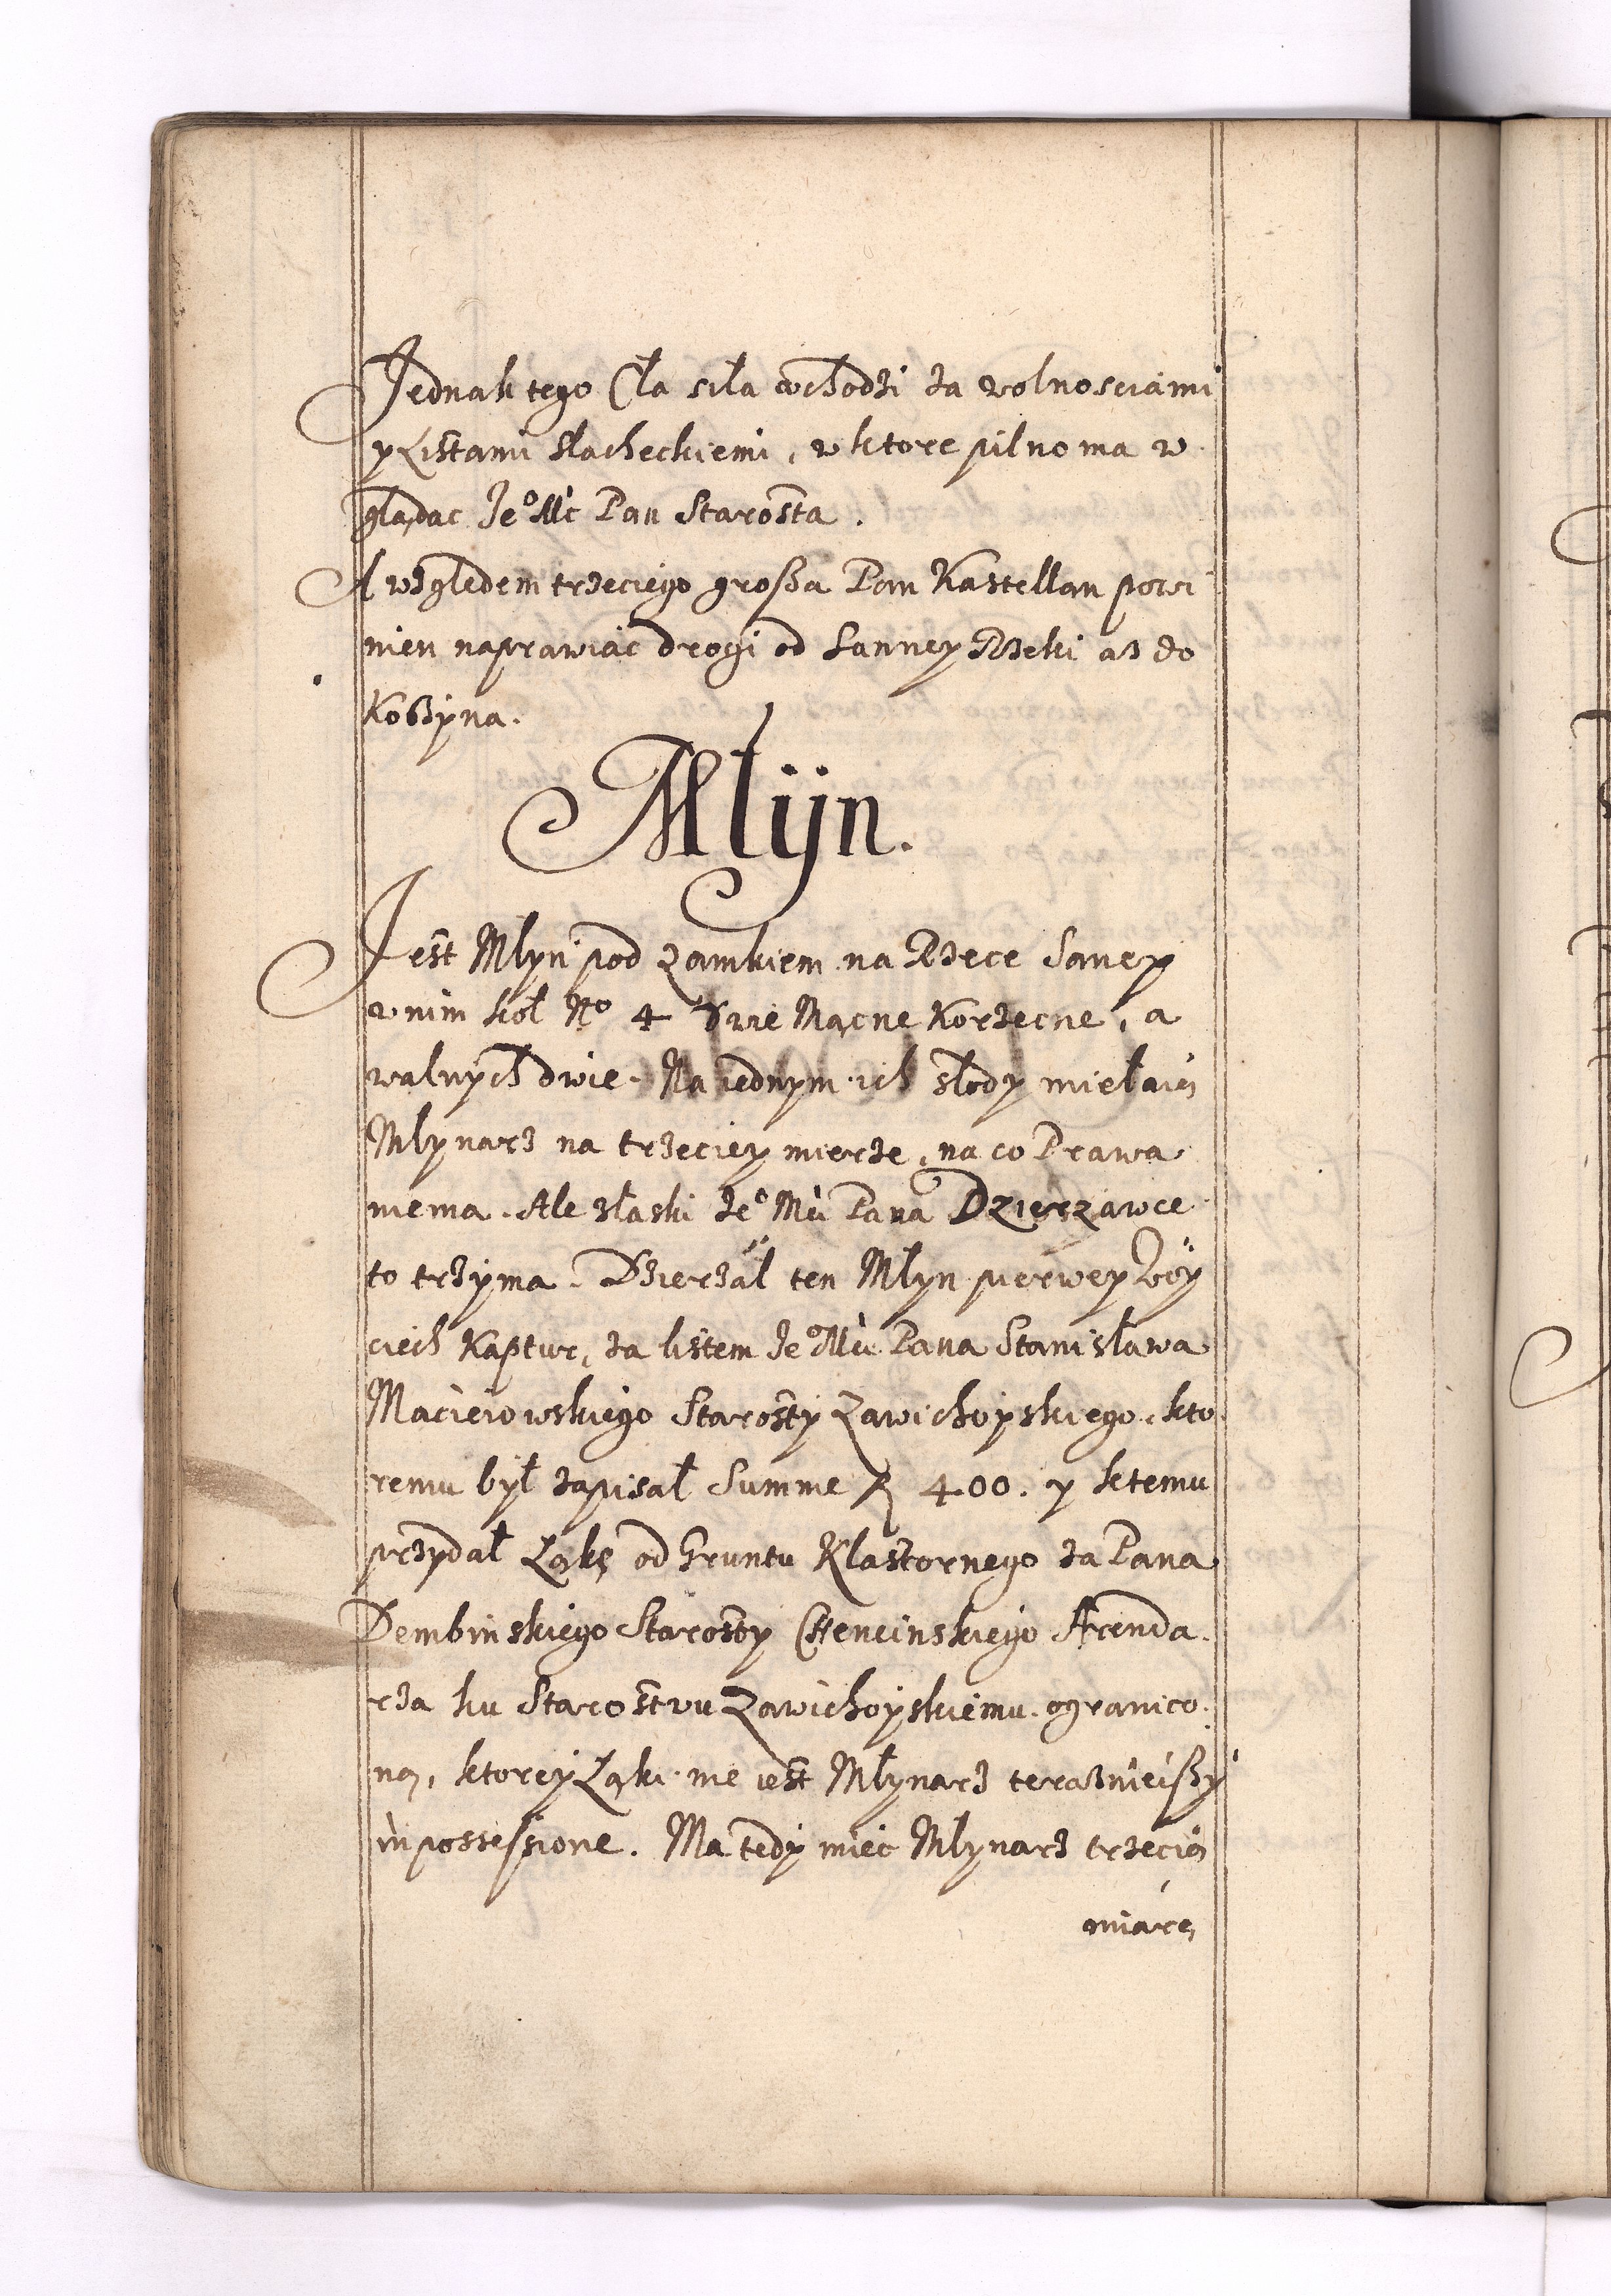 Jednak tego Cła siła wchodzi za wolnosciami
y Listami slacheckiemi, w ktore pilno ma w
glądac Je⁰ Mć Pan Starosta.
A względem trzeciego großa Pan Kastellan powi
nien naprawiac drogi od Sanney Rzeki az do
Kobzyna.
Młijn.
Jest Mlyn pod Zamkiem na Rzece Saney
w nim koł N⁰ 4 dwie Mącne Korzecne, a
walnych dwie. Na iednym ich słody mielaią
Mlynarz na trzeciey mierze, na co Prawa
niema. Ale z łaski Je⁰ Mći Pana Dzierzawce
to trzyma. Dzierzał ten Młyn pierwey Woy
ciech Kaptur, za listem Je⁰ Mći Pana Stanisława
Macieiowskiego Starosty Zawichoyskiego, kto
remu był zapisał Summe 400. y k temu
przydał Łąkę od Gruntu Klastornego za Pana
Dembinskiego Starosty Chencinskiego Arenda
rza ku Starostwu Zawichoyskiemu ogranico
ną, ktorey Łąki nie iest Młynarz terazniéißy
in possessione. Ma tedy miec Mlynarz trzecią
miarę